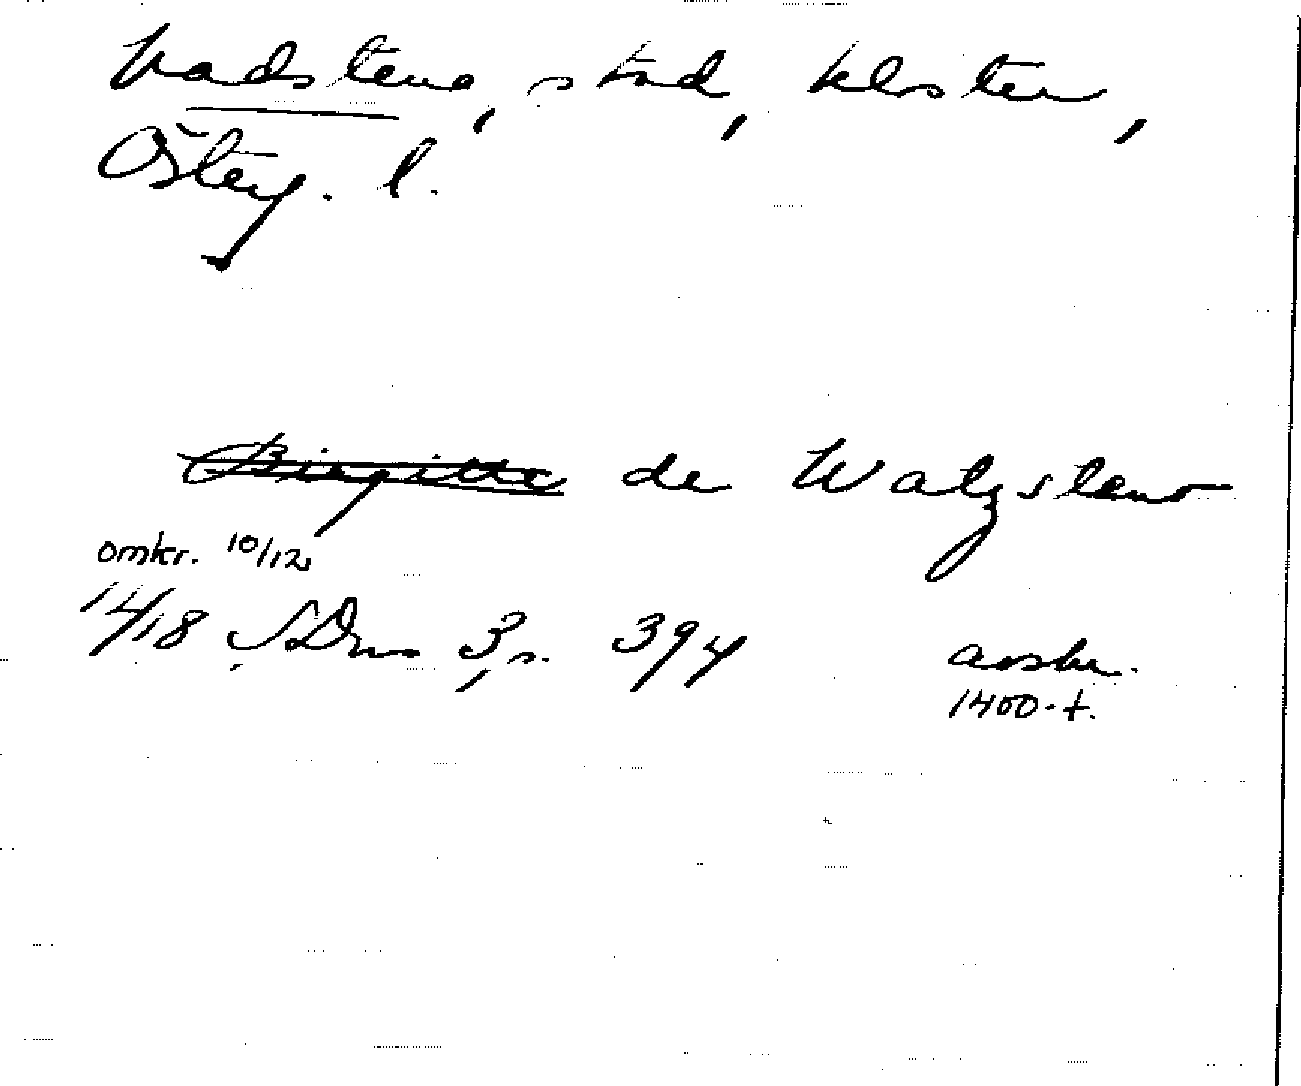 Vadstena, stad, kloster,
Österg. l.
Birgitta de Watzsteno
omkr. 10/12
1418 SDns 3, s. 394 avskr.
1400-t.